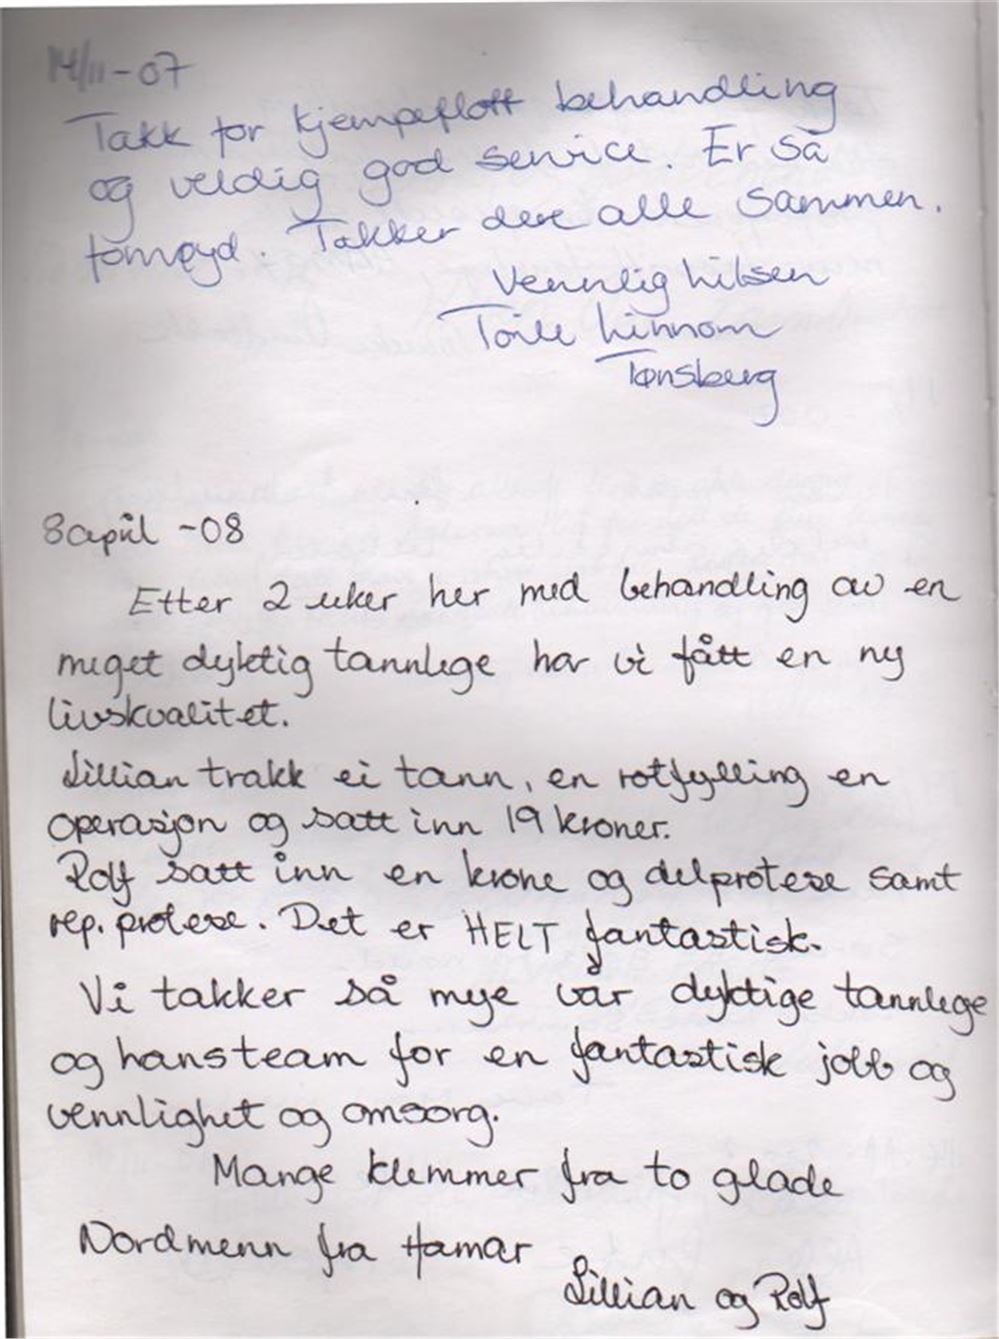 14/11-07
Takk for kjempeflott behandling
og veldig god service. Er så
fornøyd. Takker dere alle sammen.
Vennlig hilsen
Tønsberg
8 april -08
Etter 2 uker her med behandling av en
meget dyktig tannlege har vi fått en ny
livskvalitet.
Lillian trakk ei tann, en rotfylling en
operasjon og satt inn 19 kroner.
Rolf satt inn en krone og delprotese samt
rep. protese. Det er HELT fantastisk.
Vi takker så mye vår dyktige tannlege
og hans team for en fantastisk jobb og
vennlighet og omsorg.
Mange klemmer fra to glade
Nordmenn fra Hamar
Lillian og Rolf